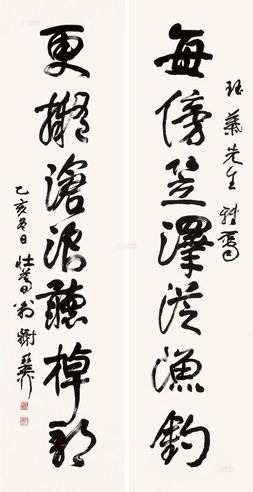 每傍笠澤從漁釣
先生雅屬
更擬滄浪聽棹歌
乙亥夏日壯暮翁謝稚柳